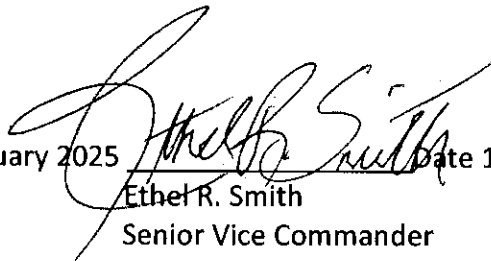 uary 2025 Ethel R. Smith Date 1
Ethel R. Smith
Senior Vice Commander